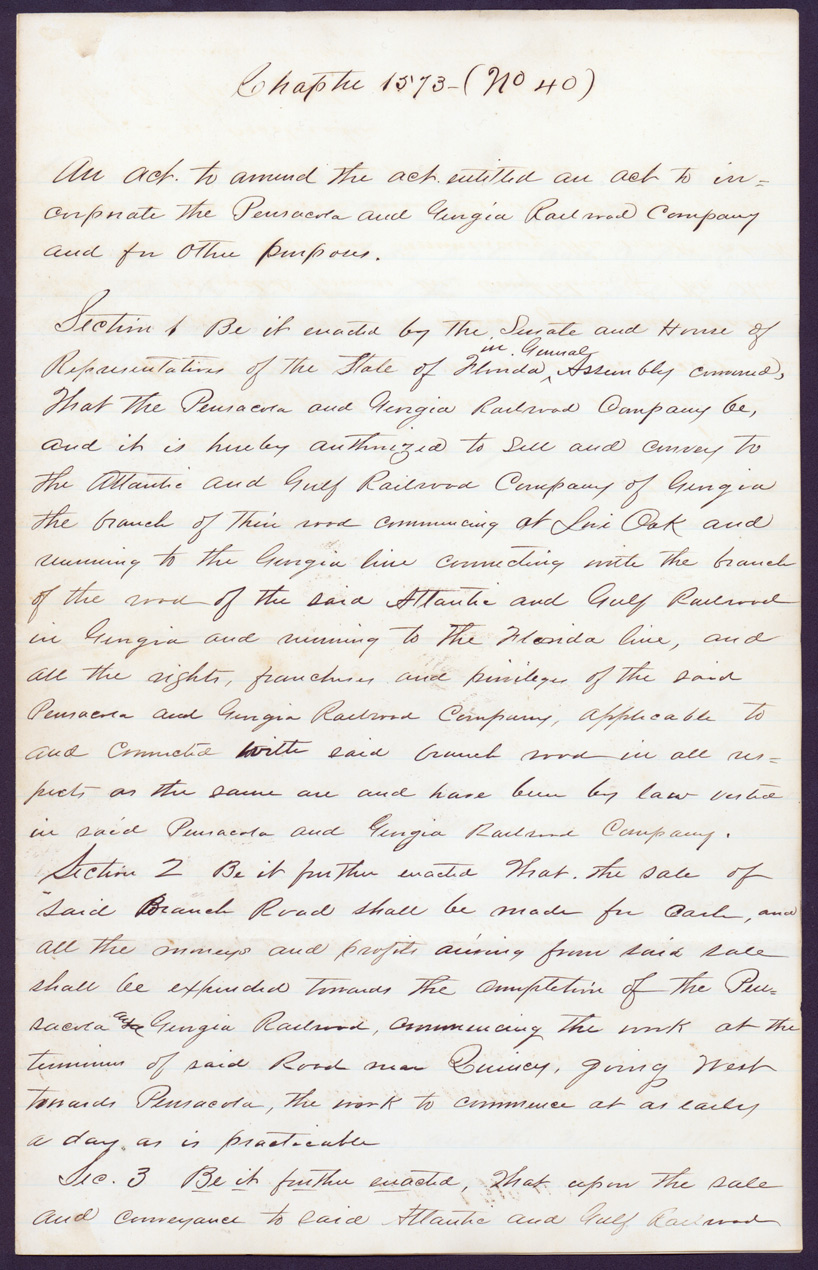 Chapter 1573-(No 40)
An act. to amend the act. entitled an act to in=
corporate the Pensacola and Georgia Railroad Company
and for other purposes.
Section 1 Be it enacted by the Senate and House of
in General
Representatives of the State of Florida, Assembly convened,
That the Pensacola and Georgia Railroad Company be,
and it is hereby authorized to sell and convey to
the Atlantic and Gulf Railroad Company of Georgia
the branch of their road commencing at Live Oak and
running to the Georgia line connecting with the branch
of the road of the said Atlantic and Gulf Railroad
in Georgia and running to the Florida line, and
all the rights, franchises and privileges of the said
Pensacola and Georgia Railroad Company, applicable to
and connected with said branch road in all res=
pects as the same are and have been by law vested
in said Pensacola and Georgia Railroad Company.
Section 2 Be it further enacted That. the sale of
said Branch Road shall be made for cash, and
all the moneys and profits arising from said sale
shall be expended towards the completion of the Pen=
sacola and Georgia Railroad, commencing the work at the
terminus of said Road near Quincy, going West
towards Pensacola, the work to commence at as early
a day as is practicable
Sec. 3 Be it further enacted, That upon the sale
and conveyance to said Atlantic and Gulf Railroad